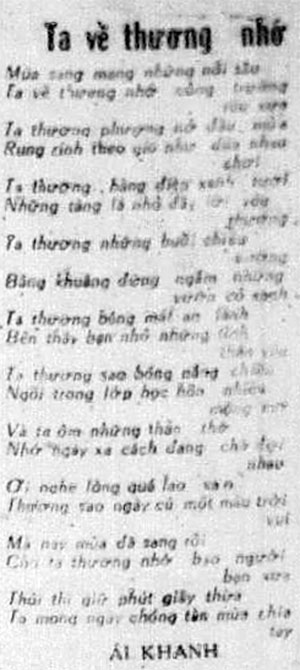 Ta về thương nhớ
Mùa sang mang những nỗi sầu
Ta về thương nhớ cổng trường
xưa
Ta thương phượng nở đầu mùa
Rung rinh theo gió như đùa
chơi
Ta thương hàng điệp xanh tươi
Những tàng lá nhỏ đầy lời yêu
thương
Ta thương những buổi chiều
Bâng khuâng đứng ngắm những
vườn cỏ xanh
Ta thương bóng mát an lành
Bên thầy bạn nhỏ những tình
thân yêu
Ta thương sao bóng nắng chiều
Ngồi trong lớp học hồn nhiều
mộng mơ
Và ta ôm những thẫn thờ
Nhớ ngày xa cách đang chờ đợi
nhau
Ơi nghe lòng quá lao xao
Thương sao ngày cũ một màu trời
vui
Mà nay mùa đã sang rồi
Còn ta thương nhớ bao người
bạn xưa
Thôi thì giữ phút giây thừa
Ta mong ngày chống tên mùa chia
tay
ÁI KHANH